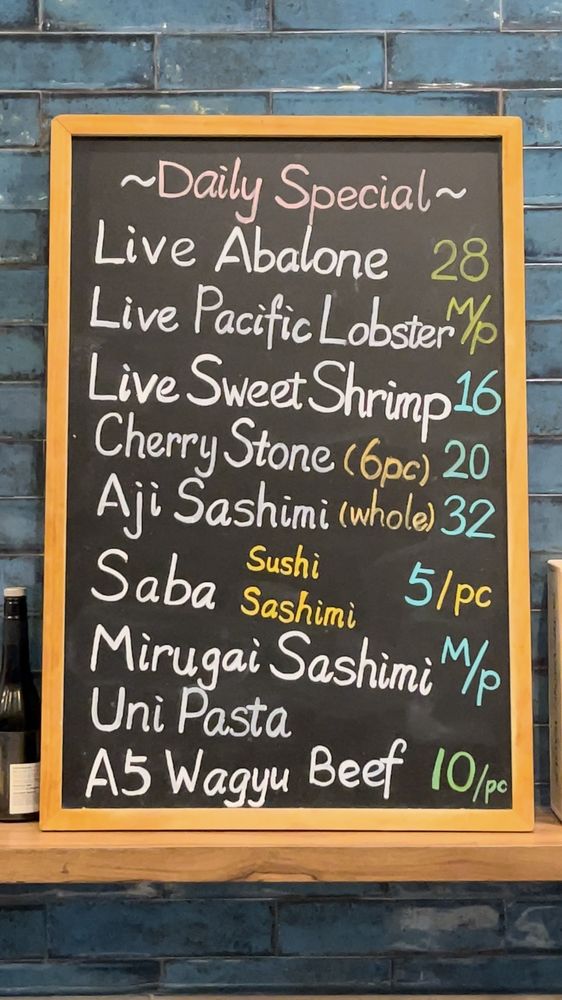 ~Daily Special~
Live Abalone 28
Live Pacific Lobster M/p
Live Sweet Shrimp 16
Cherry Stone (6pc) 20
Aji Sashimi (whole) 32
Saba Sushi Sashimi 5/pc
Mirugai Sashimi M/p
Uni Pasta
A5 Wagyu Beef 10/pc